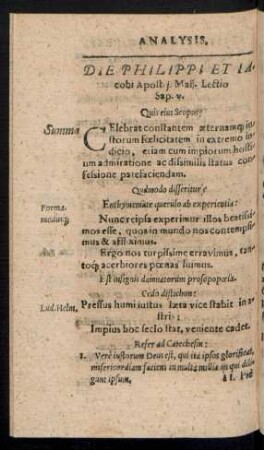 ANALYSIS.
DIE PHILIPPI ET IA-
cobi Apost. j. Maij. Lectio
Sap. v.
Quis eius Scopus?
Summa
CElebrat constantem æternamq; iu-
storum Fœlicitatem in extremo iu-
dicio, etiam cum impiorum hosti-
um admiratione ac dissimilis status con-
fessione patefaciendam.
Quomodo disseritur?
Forma
Enthymemate querulo ab experientia:
Nunc reipsa experimur illos beatissi-
mos esse, quos in mundo nos contempsi-
mus & afflximus.
Ergo nos turpissime erravimus, tan-
toq; acerbiores pœnas luimus.
Est insignis damnatorum prosopopœia.
Cedo distichon:
Lud. Helm.
Pressus humi iustus læta vice stabit in
astris:
Impius hoc seclo stat, veniente cadet.
Refer ad Catechesin:
1. Verè iustorum Deus est, qui ita ipsos glorificat,
misericordiam faciens in multa millia in qui dili-
gunt ipsum,